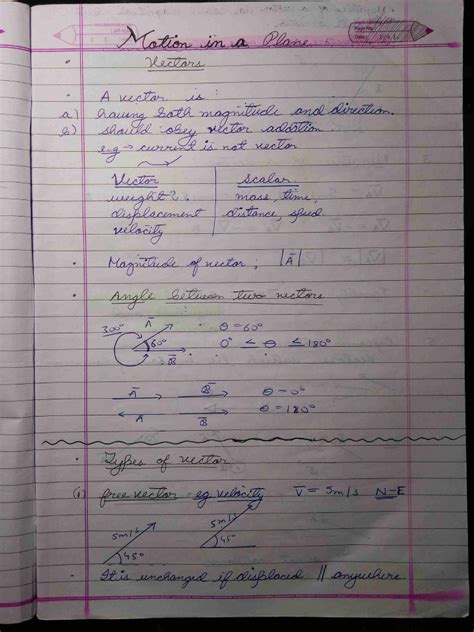 Motion in a Plane
Vectors
· A vector is :
a) having both magnitude and direction.
b) should obey vector addition.
e.g → current is not vector
Vector Scalar
weight?. mass, time,
displacement distance, speed.
velocity
· Magnitude of vector ; |A̅|
· Angle between two vectors :
300° A̅ 60° B̅ θ = 60°
0° ≤ θ ≤ 180°
A̅ B̅ θ = 0°
A B̅ θ = 180°
· Types of vector
(i) free vector eg velocity V̅ = 5m/s N-E
5m/s 45° 5m/s 45°
· It is unchanged if displaced || anywhere.